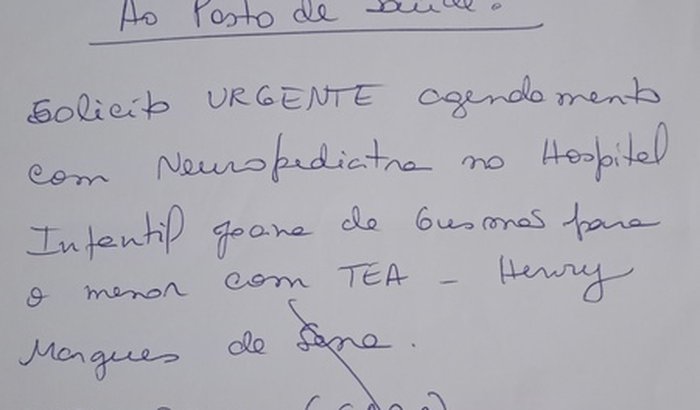 Ao Posto de Saúde.
Solicito URGENTE agendamento
com Neuropediatra no Hospital
Infantil Joana de Gusmão para
o menor com TEA - Henry
Marques de Sena.